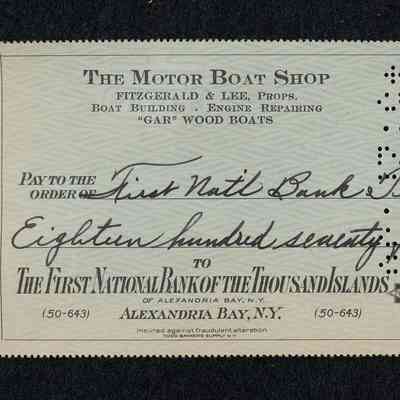 THE MOTOR BOAT SHOP
FITZGERALD & LEE, PROPS.
BOAT BUILDING - ENGINE REPAIRING
"GAR" WOOD BOATS
PAY TO THE
ORDER OF First Nat'l Bank
Eighteen hundred seventy
TO
THE FIRST NATIONAL BANK OF THE THOUSAND ISLANDS
OF ALEXANDRIA BAY, N.Y.
(50-643) ALEXANDRIA BAY, N.Y. (50-643)
insured against fraudulent alteration
TODD BANKERS SUPPLY N.Y.